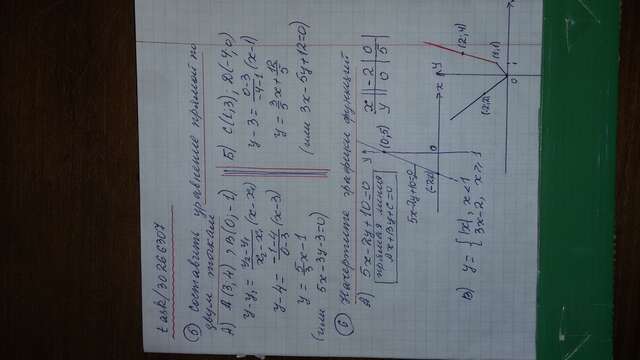 task/30266307
⑤ Составить уравнение прямой по
двум точкам
А) A(3,4), B(0,-1)
y-y₁ = (y₂-y₁)/(x₂-x₁) (x-x₁)
y-4 = (-1-4)/(0-3) (x-3)
y = 5/3 x-1
(или 5x-3y-3=0)
Б) C(1,3); D(-4,0)
y-3 = (0-3)/(-4-1) (x-1)
y = 3/5 x + 12/5
(или 3x-5y+12=0)
⑥ Начертите графики функций
А) 5x-2y+10=0
прямая линия
Ax+By+C=0
y
(0,5)
x -2 0
y 0 5
5x-2y+10=0
0
x
В) y = { |x|, x<1
3x-2, x⩾1
y
(2,4)
(-2,2)
(1,1)
0 1